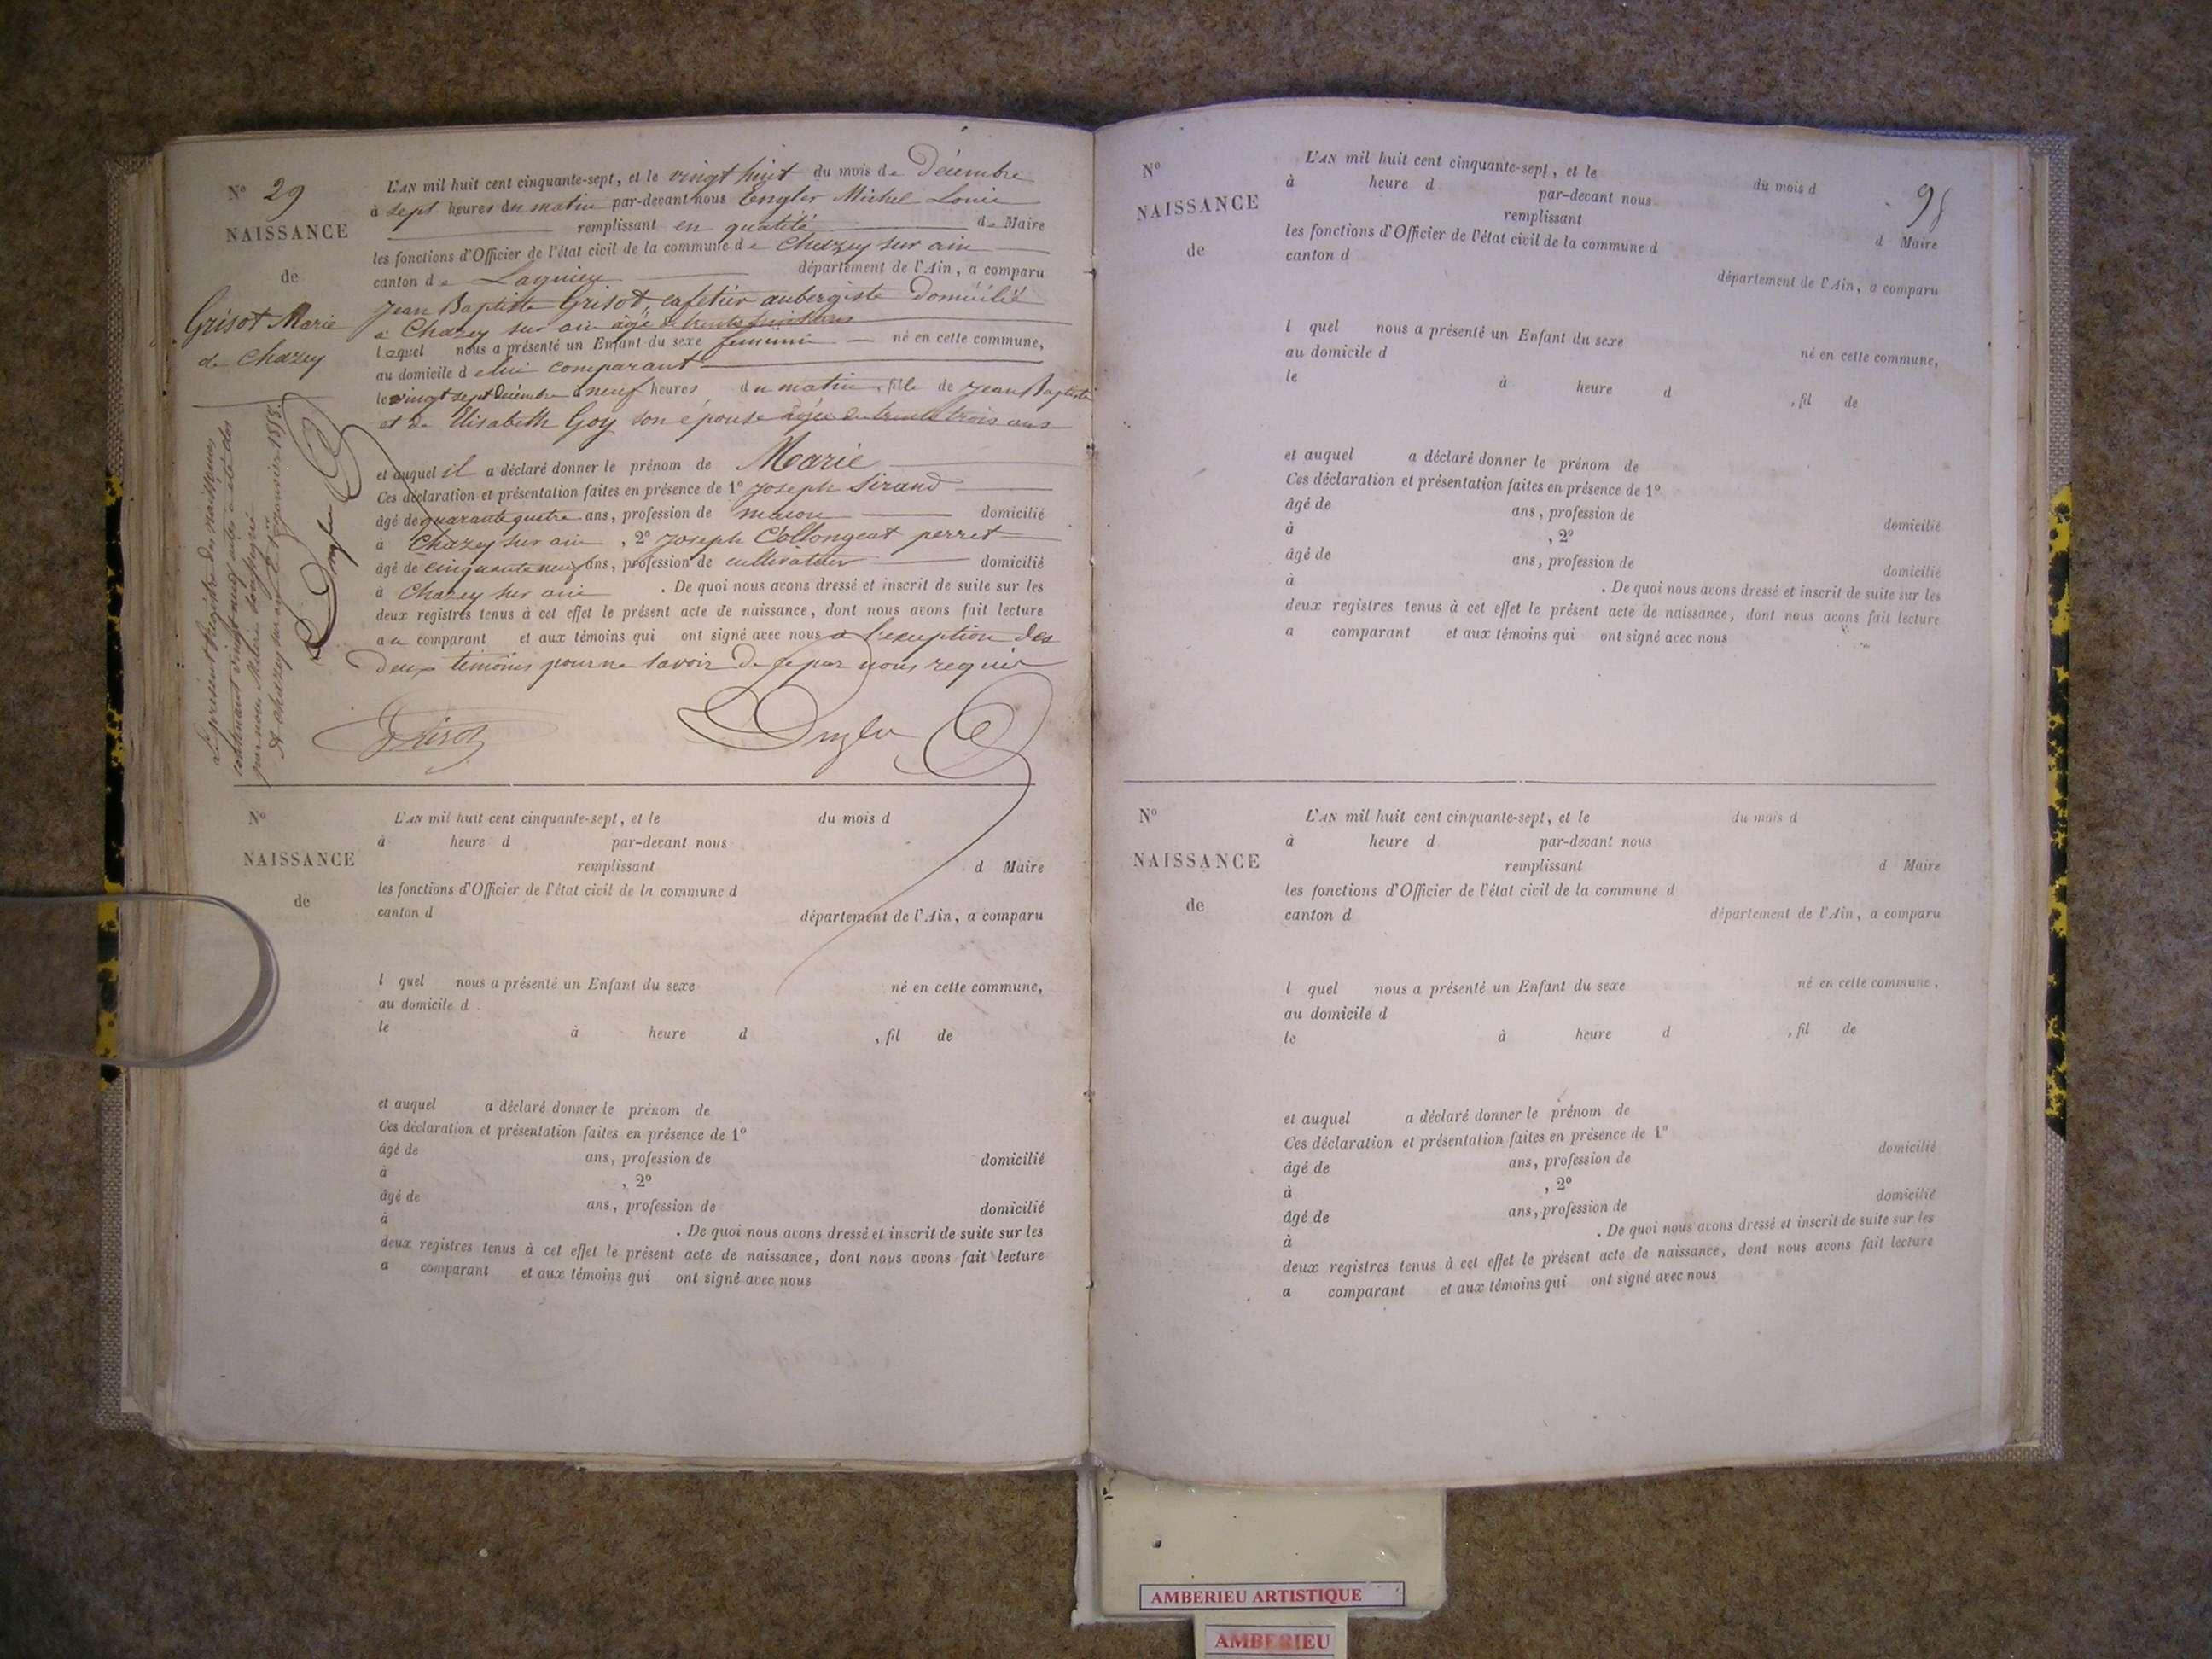 N° 29
NAISSANCE
de
Grisot Marie
de Chazey
L'AN mil huit cent cinquante-sept, et le vingt huit du mois de Décembre
à sept heures du matin par-devant nous Engler Michel Louis
remplissant en qualité de Maire
les fonctions d'Officier de l'état civil de la commune de Chazey sur ain
canton de Lagnieu département de l'Ain, a comparu
Jean Baptiste Grisot, cafetier aubergiste Domicilié
à Chazey sur ain âgé de trente huit ans
lequel nous a présenté un Enfant du sexe feminin né en cette commune,
au domicile de lui comparant
le vingt sept Décembre à neuf heures du matin, fille de Jean Baptiste
et de Elisabeth Goy son épouse âgée de trente trois ans
et auquel il a déclaré donner le prénom de Marie
Ces déclaration et présentation faites en présence de 1° Joseph Sirand
âgé de quarante quatre ans, profession de maçon domicilié
à Chazey sur ain, 2° Joseph Collongeat perret
âgé de cinquante neuf ans, profession de cultivateur domicilié
à Chazey sur ain. De quoi nous avons dressé et inscrit de suite sur les
deux registres tenus à cet effet le présent acte de naissance, dont nous avons fait lecture
au comparant et aux témoins qui ont signé avec nous à l'exception des
deux témoins pour ne savoir de ce par nous requis
Grisot
Engler
Le présent registre des naissances
contenant vingt neuf actes a été clos
par nous Maire soussigné
A Chazey sur ain le 1er janvier 1858.
Engler
N°
NAISSANCE
de
L'AN mil huit cent cinquante-sept, et le du mois d
à heure d par-devant nous
remplissant d Maire
les fonctions d'Officier de l'état civil de la commune d
canton d département de l'Ain, a comparu
l quel nous a présenté un Enfant du sexe né en cette commune,
au domicile d
le à heure d , fil de
et auquel a déclaré donner le prénom de
Ces déclaration et présentation faites en présence de 1°
âgé de ans, profession de domicilié
à , 2°
âgé de ans, profession de domicilié
à . De quoi nous avons dressé et inscrit de suite sur les
deux registres tenus à cet effet le présent acte de naissance, dont nous avons fait lecture
a comparant et aux témoins qui ont signé avec nous
N°
NAISSANCE
de
L'AN mil huit cent cinquante-sept, et le du mois d
à heure d par-devant nous
remplissant d Maire
les fonctions d'Officier de l'état civil de la commune d
canton d département de l'Ain, a comparu
l quel nous a présenté un Enfant du sexe né en cette commune,
au domicile d
le à heure d , fil de
et auquel a déclaré donner le prénom de
Ces déclaration et présentation faites en présence de 1°
âgé de ans, profession de domicilié
à , 2°
âgé de ans, profession de domicilié
à . De quoi nous avons dressé et inscrit de suite sur les
deux registres tenus à cet effet le présent acte de naissance, dont nous avons fait lecture
a comparant et aux témoins qui ont signé avec nous
N°
NAISSANCE
de
L'AN mil huit cent cinquante-sept, et le du mois d
à heure d par-devant nous
remplissant d Maire
les fonctions d'Officier de l'état civil de la commune d
canton d département de l'Ain, a comparu
l quel nous a présenté un Enfant du sexe né en cette commune,
au domicile d
le à heure d , fil de
et auquel a déclaré donner le prénom de
Ces déclaration et présentation faites en présence de 1°
âgé de ans, profession de domicilié
à , 2°
âgé de ans, profession de domicilié
à . De quoi nous avons dressé et inscrit de suite sur les
deux registres tenus à cet effet le présent acte de naissance, dont nous avons fait lecture
a comparant et aux témoins qui ont signé avec nous
AMBERIEU ARTISTIQUE
AMBERIEU